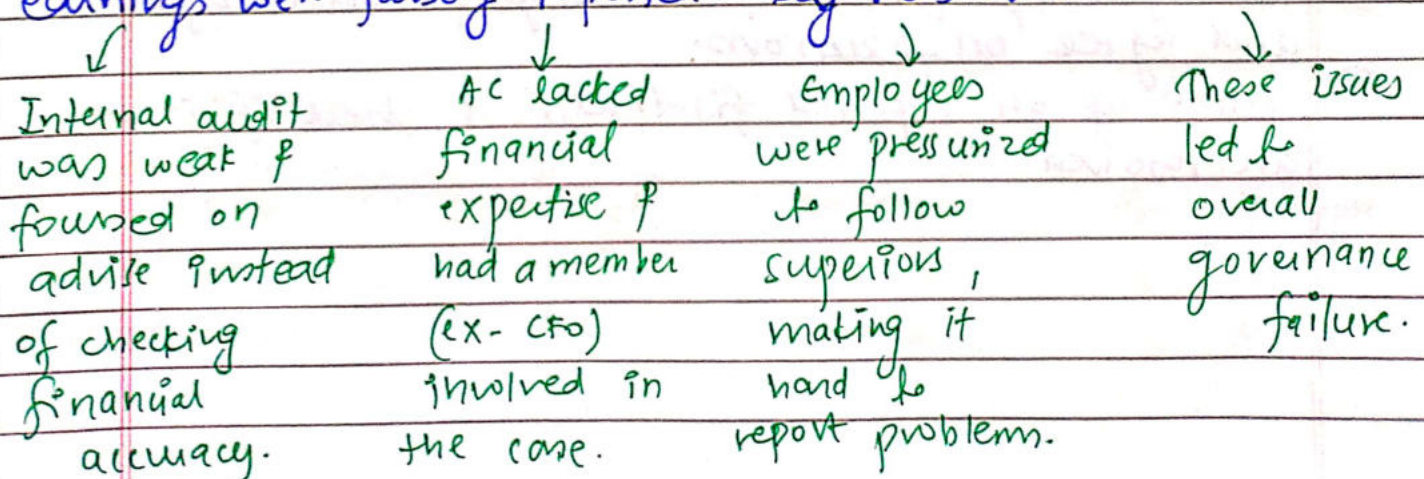 earnings were falsely reported by
Internal audit
was weak &
focused on
advise instead
of checking
financial
accuracy.
AC lacked
financial
expertise &
had a member
(ex- CFO)
involved in
the case.
Employees
were pressurized
to follow
superiors,
making it
hard to
report problems.
These issues
led to
overall
governance
failure.